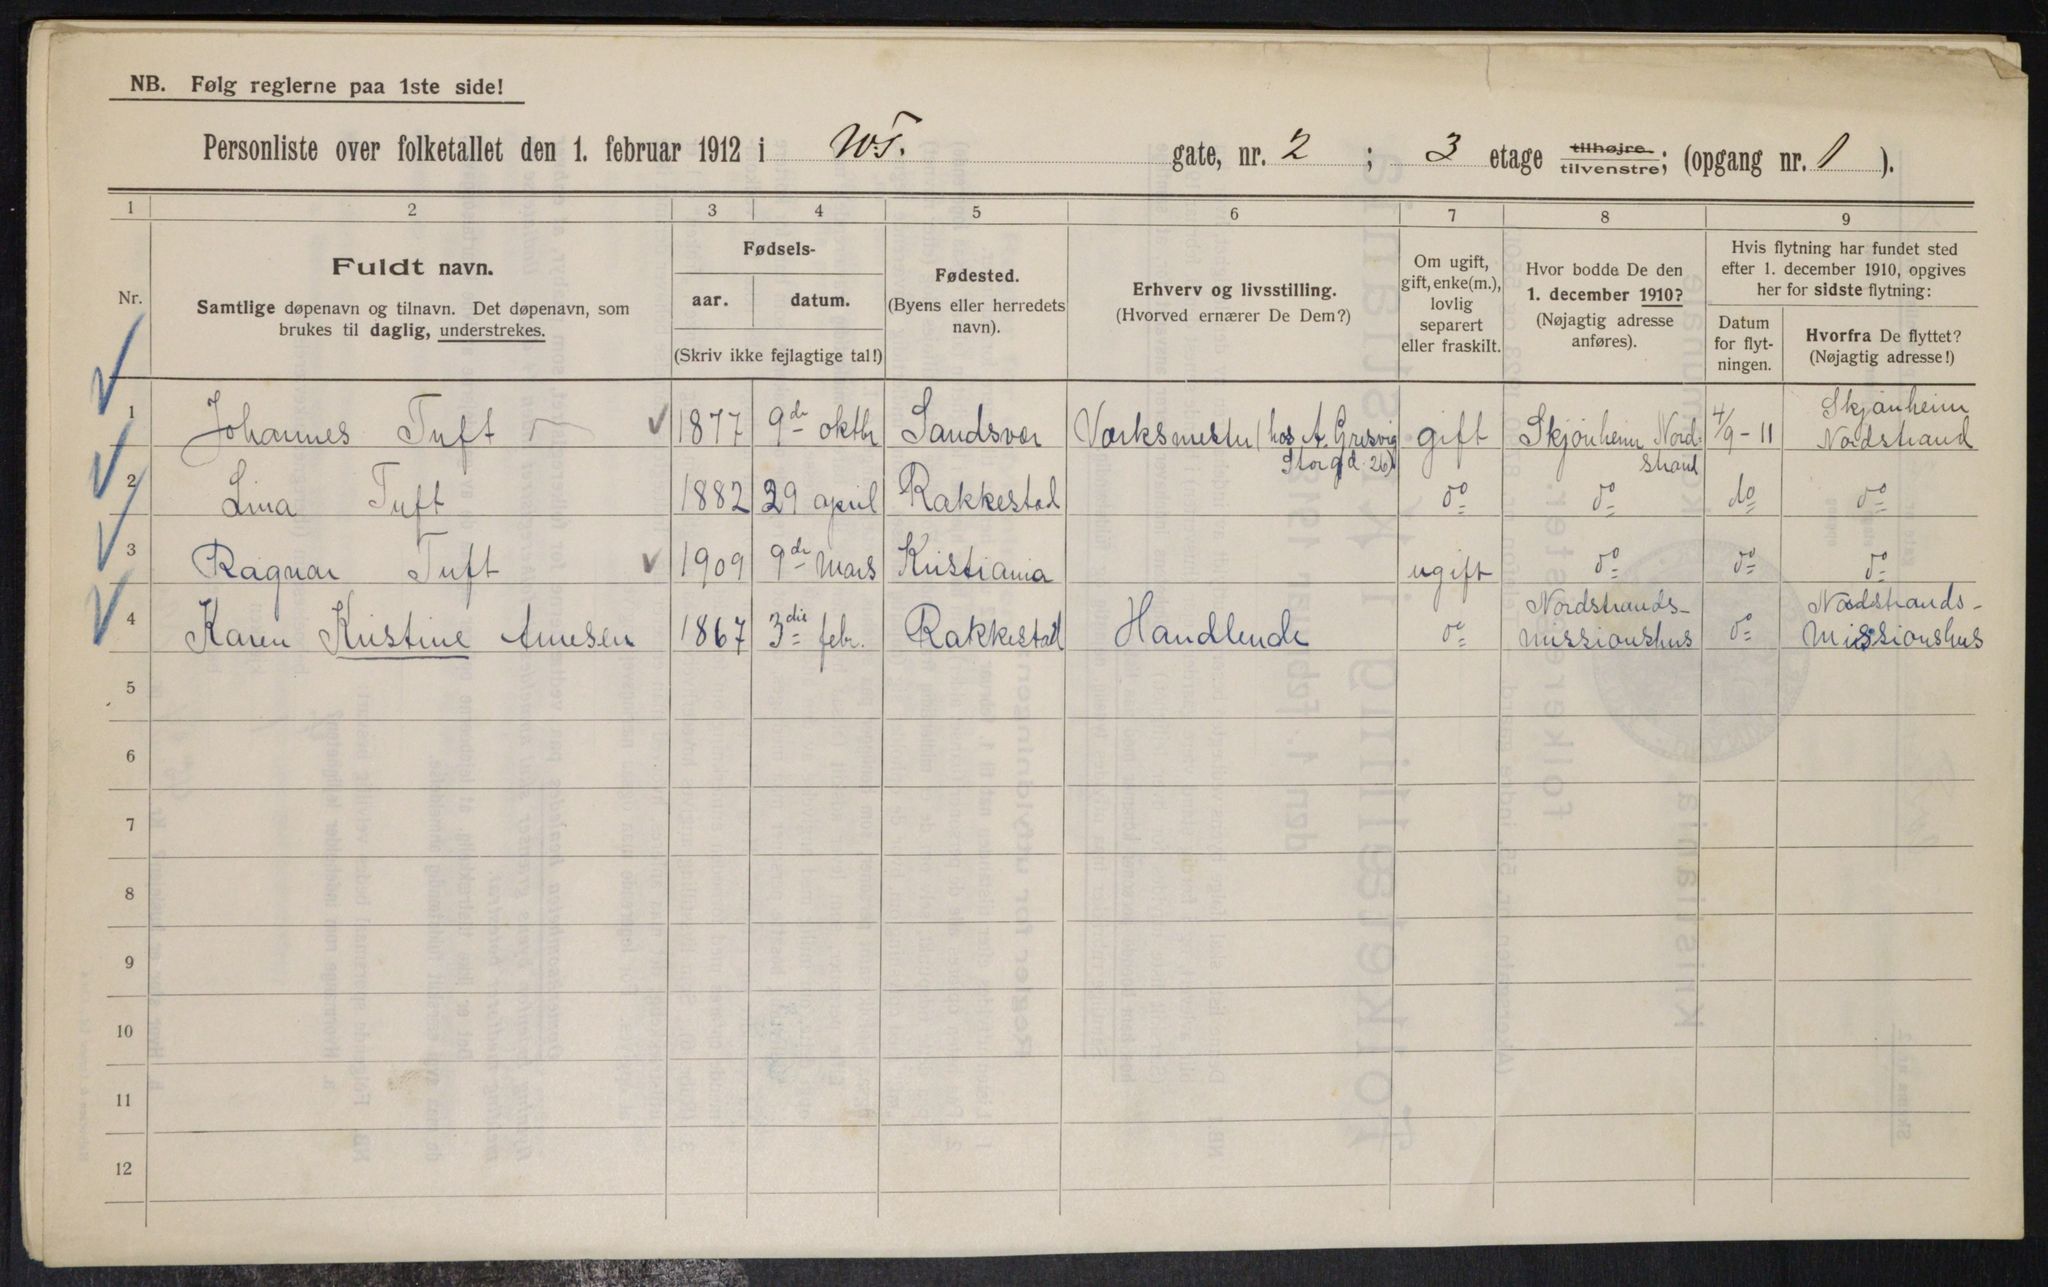 NB. Følg reglerne paa 1ste side!
Personliste over folketallet den 1. februar 1912 i W.T. gate, nr. 2 ; 3 etage tilhøjre/tilvenstre; (opgang nr. 1 ).
1 2 3 4 5 6 7 8 9
Nr.
Fuldt navn.
Samtlige døpenavn og tilnavn. Det døpenavn, som
brukes til daglig, understrekes.
Fødsels-
aar. datum.
(Skriv ikke fejlagtige tal!)
Fødested.
(Byens eller herredets
navn).
Erhverv og livsstilling.
(Hvorved ernærer De Dem?)
Om ugift,
gift, enke(m.),
lovlig
separert
eller fraskilt.
Hvor bodde De den
1. december 1910?
(Nøjagtig adresse
anføres).
Hvis flytning har fundet sted
efter 1. december 1910, opgives
her for sidste flytning:
Datum
for flyt-
ningen.
Hvorfra De flyttet?
(Nøjagtig adresse!)
1 Johannes Tuft 1877 9de oktbr Sandsvær Værksmester (hos A. Gresvig Storgd. 26) gift Skjønheim Nordstrand 4/9-11 Skjønheim Nordstrand
2 Lina Tuft 1882 29 april Rakkestad do do do do
3 Ragnar Tuft 1909 9de Mars Kristiania ugift do do do
4 Karen Kristine Arnesen 1867 3die febr. Rakkestad Handlende do Nordstrands-missionshus do Nordstrands-Missionshus
5
6
7
8
9
10
11
12